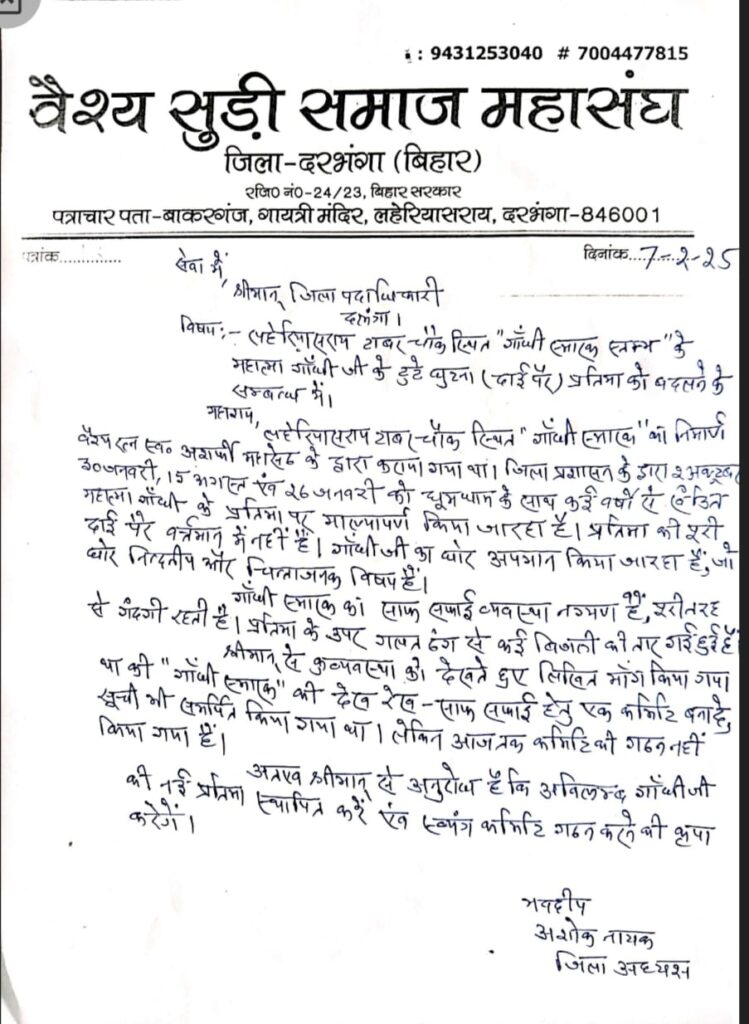 : 9431253040 # 7004477815
वैश्य सुड़ी समाज महासंघ
जिला-दरभंगा (बिहार)
रजि0 नं0-24/23, बिहार सरकार
पत्राचार पता-बाकरगंज, गायत्री मंदिर, लहेरियासराय, दरभंगा-846001
पत्रांक............. दिनांक....7-2-25
सेवा में,
श्रीमान् जिला पदाधिकारी
दरभंगा।
विषय:- लहेरियासराय टावर-चौक स्थित "गाँधी स्मारक स्तम्भ" के
महात्मा गाँधी जी के टुटे घुटना (दाई पैर) प्रतिमा को बदलने के
सम्बन्ध में।
महाशय, लहेरियासराय टावर-चौक स्थित "गाँधी स्मारक" का निर्माण
वैश्य रत्न स्व० अशर्फी महासेठ के द्वारा कराया गया था। जिला प्रशासन के द्वारा 2 अक्टूबर
30 जनवरी, 15 अगस्त एंव 26 जनवरी को धूमधाम के साथ कई वर्षो से
महात्मा गाँधी के प्रतिमा पर माल्यापर्ण किया जा रहा है। प्रतिमा की
दाई पैर वर्त्तमान में नहीं है। गाँधी जी का घोर अपमान किया जा रहा है, जो
घोर निन्दनीय और चिन्ताजनक विषय है।
गाँधी स्मारक का साफ सफाई व्यवस्था नगण्य है, पूरी तरह
से गंदगी रहती है। प्रतिमा के उपर गलत ढंग से कई बिजली की तार गई हुई है
श्रीमान् से कुव्यवस्था को देखते हुए लिखित माँग किया गया
था की "गाँधी स्मारक" की देख रेख-साफ सफाई हेतु एक कमिटि बना दे,
सूची भी समर्पित किया गया था। लेकिन आजतक कमिटि की गठन नहीं
किया गया है।
अतएव श्रीमान् से अनुरोध है कि अविलम्ब गाँधी जी
की नई प्रतिमा स्थापित करें एंव स्व्यंग कमिटि गठन करने की कृपा
करेगें।
भवदीय
अशोक नायक
जिला अध्यक्ष